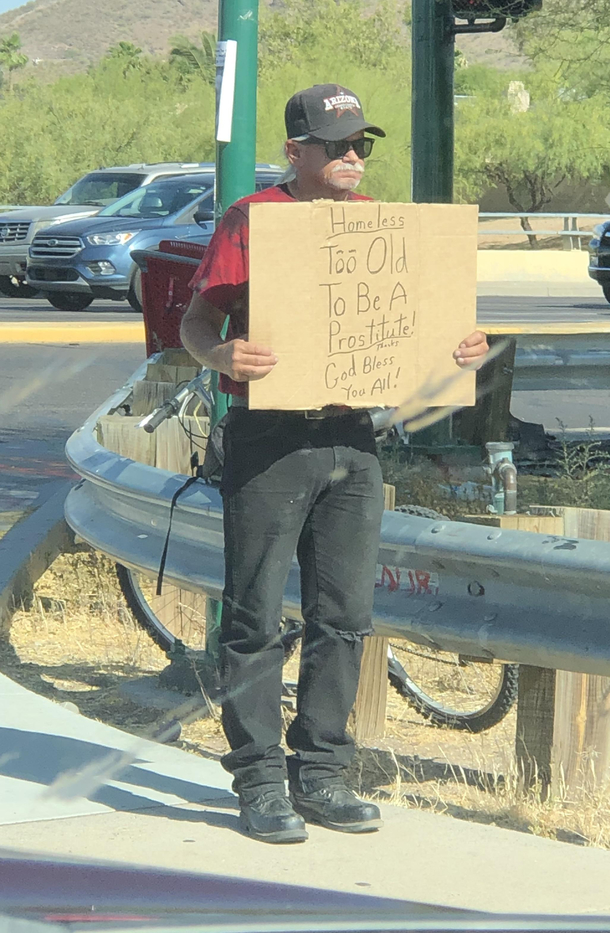 ARIZONA
Homeless
Too Old
To Be A
Prostitute!
Thanks
God Bless
You All!